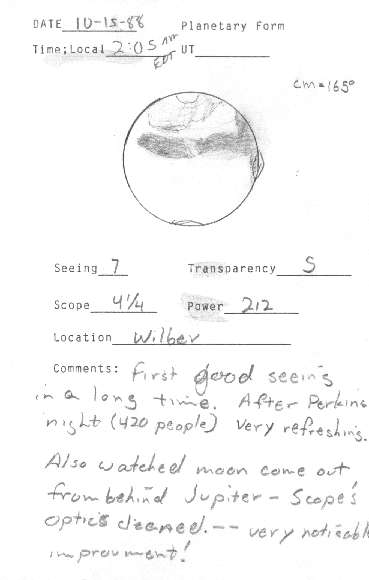 DATE 10-15-88 Planetary Form
Time;Local 2:05 AM EDT UT
CM=165°
Seeing 7 Transparency 5
Scope 4 1/4 Power 212
Location Wilber
Comments: First good seeing
in a long time. After Perkins
night (420 people) very refreshing.
Also watched moon come out
from behind Jupiter - Scope's
optics cleaned. -- very noticable
improvment!